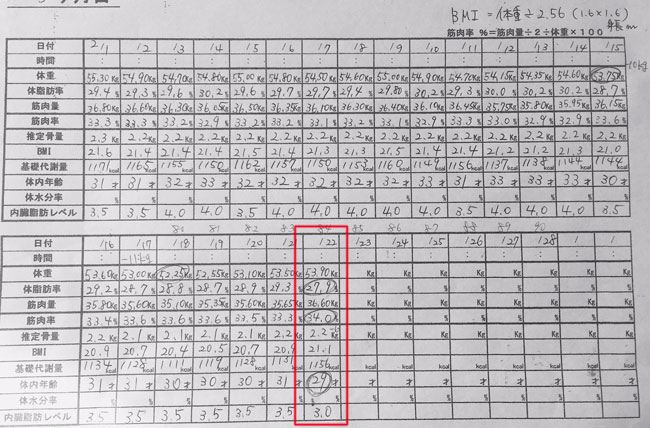 BMI = 体重 ÷ 2.56 (1.6×1.6)
筋肉率 %=筋肉量÷2÷体重×100
身長m
日付 2/1 1/2 1/3 1/4 1/5 1/6 1/7 1/8 1/9 1/10 1/11 1/12 1/13 1/14 1/15
時間 : : : : : : : : : : : : : : :
体重 55.30Kg 54.90Kg 54.90Kg 54.80Kg 55.00Kg 54.80Kg 54.50Kg 54.60Kg 55.00Kg 54.90Kg 54.70Kg 54.15Kg 54.35Kg 54.60Kg 53.75Kg
体脂肪率 29.4% 29.3% 29.6% 30.2% 29.6% 29.7% 29.7% 29.4% 29.80% 30.2% 29.3% 30.0% 30.2% 30.2% 28.7%
筋肉量 36.80Kg 36.60Kg 36.30Kg 36.05Kg 36.50Kg 36.35Kg 36.10Kg 36.30Kg 36.40Kg 36.10Kg 36.45Kg 35.75Kg 35.80Kg 35.95Kg 36.15Kg
筋肉率 33.3% 33.3% 33.2% 32.9% 33.2% 33.2% 33.1% 33.2% 33.1% 32.9% 33.3% 33.0% 32.9% 32.9% 33.6%
推定骨量 2.3Kg 2.2Kg 2.2Kg 2.2Kg 2.2Kg 2.2Kg 2.2Kg 2.2Kg 2.2Kg 2.2Kg 2.2Kg 2.2Kg 2.2Kg 2.2Kg 2.2Kg
BMI 21.6 21.4 21.4 21.4 21.5 21.4 21.3 21.3 21.5 21.4 21.4 21.2 21.2 21.3 21.0
基礎代謝量 1171kcal 1165kcal 1155kcal 1150kcal 1162kcal 1157kcal 1150kcal 1153kcal 1160kcal 1149kcal 1156kcal 1137kcal 1138kcal 1144kcal 1144kcal
体内年齢 31才 31才 32才 33才 32才 32才 32才 32才 32才 33才 31才 32才 33才 33才 30才
体水分率 % % % % % % % % % % % % % % %
内臓脂肪レベル 3.5 3.5 4.0 4.0 3.5 4.0 4.0 4.0 4.0 4.0 4.0 4.0 4.0 4.0 3.5
80 81 82 83 84 85 86 87 88 89 90
日付 1/16 1/17 1/18 1/19 1/20 1/21 1/22 1/23 1/24 1/25 1/26 1/27 1/28 / /
時間 : : : : : : : : : : : : : : :
体重 53.60Kg 53.00Kg 52.25Kg 52.55Kg 53.10Kg 53.50Kg 53.90Kg Kg Kg Kg Kg Kg Kg Kg Kg
体脂肪率 29.2% 28.7% 28.8% 28.7% 28.9% 29.3% 27.9% % % % % % % % %
筋肉量 35.80Kg 35.60Kg 35.10Kg 35.35Kg 35.60Kg 35.65Kg 36.60Kg Kg Kg Kg Kg Kg Kg Kg Kg
筋肉率 33.4% 33.6% 33.6% 33.6% 33.5% 33.3% 34.0% % % % % % % % %
推定骨量 2.2Kg 2.1Kg 2.1Kg 2.1Kg 2.1Kg 2.2Kg 2.2Kg Kg Kg Kg Kg Kg Kg Kg Kg
BMI 20.9 20.7 20.4 20.5 20.7 20.9 21.1
基礎代謝量 1134kcal 1128kcal 1111kcal 1119kcal 1128kcal 1131kcal 1156kcal kcal kcal kcal kcal kcal kcal kcal kcal
体内年齢 31才 31才 30才 30才 30才 31才 29才 才 才 才 才 才 才 才 才
体水分率 % % % % % % % % % % % % % % %
内臓脂肪レベル 3.5 3.5 3.5 3.5 3.5 3.5 3.0